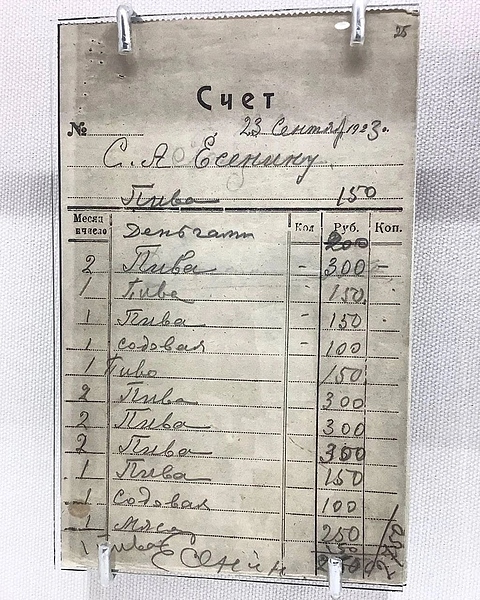 25
Счет
№ 23 Сентяб 1923г.
С. А Есенину
Пива 150
Месяц и число Кол Руб. Коп.
Деньгами 200
2 Пива - 300 -
1 Пива - 150
1 Пива - 150
1 содовая - 100
1 Пиво 150
2 Пива 300
2 Пива 300
2 Пива 300
1 Пива 150
1 Содовая 100
1 Мясо 250
1 Пиво 150